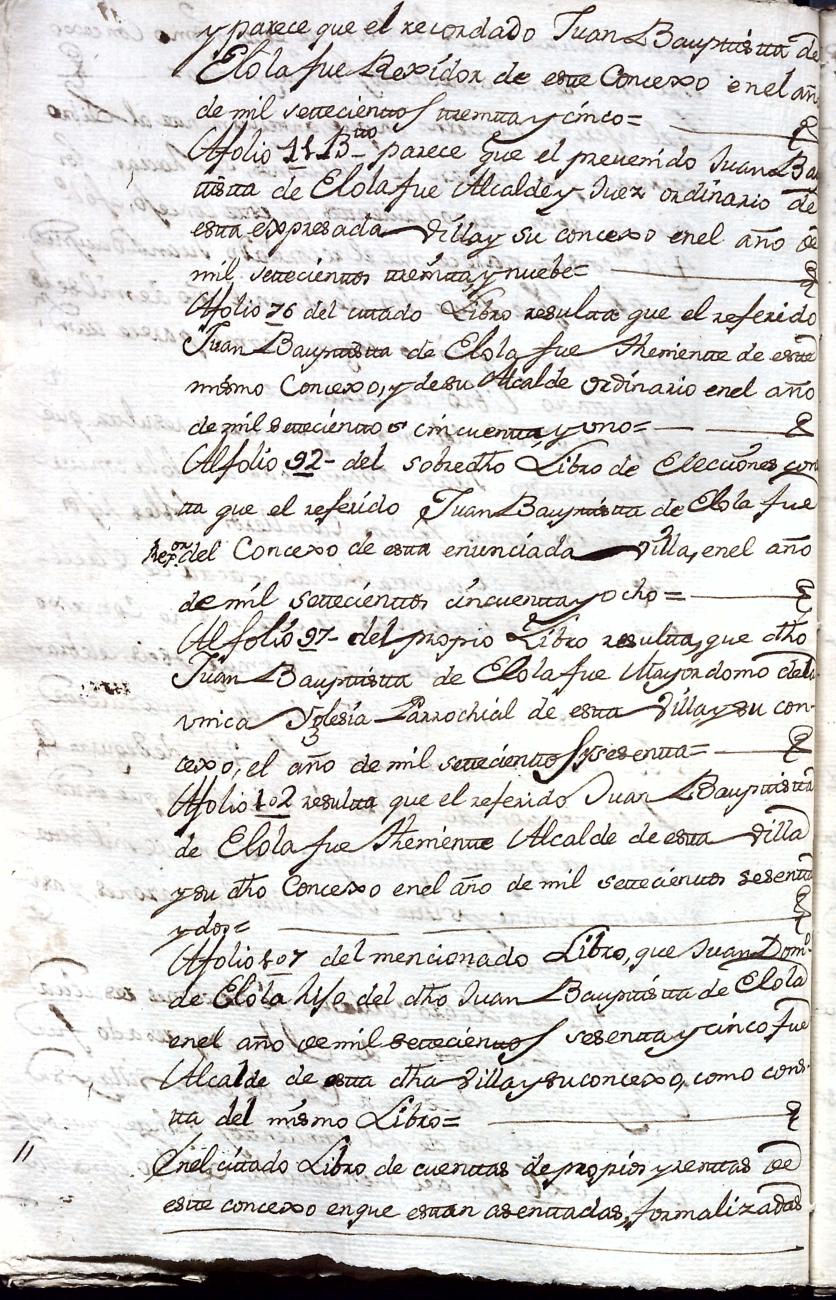 y parece que el recordado Juan Bauptistta de
Elola fue Rexidor de estte Concexo enel año
de mil settecienttos treintta y cinco=
Alfolio 11 Btto parece que el prevenido Juan Bau
ttistta de Elola fue Alcalde y Juez ordinario de
estta expresada Villa y su concexo enel año de
mil settecienttos treintta y nuebe=
Alfolio 76 del cittado Libro resultta que el referido
Juan Bauptistta de Elola fue Theniente de estte
mismo Concexo, y de su Alcalde ordinario enel año
de mil settecienttos cincuentta y uno=
Alfolio 92- del sobredho Libro de Elecciones cons
tta que el referido Juan Bauptistta de Elola fue
Rexor del Concexo de estta enunciada Villa, enel año
de mil settecienttos cincuentta y ocho=
Alfolio 97- del propio Libro resultta, que dho
Juan Bauptistta de Elola fue Mayordomo dela
unica Yglesia Parrochial de estta Villa y su con-
cexo, el año de mil settecienttos y sesentta=
Alfolio 102 resultta que el referido Juan Bauptistta
de Elola fue Theniente Alcalde de estta Villa
y su dho Concexo enel año de mil settecienttos sesentta
y dos=
Alfolio 107 del mencionado Libro, que Juan Domo
de Elola hijo del dho Juan Bauptistta de Elola
enel año de mil settecienttos sesentta y cinco fue
Alcalde de estta dha Villa y su concexo, como cons-
tta del mismo Libro=
11 Enel cittado Libro de cuenttas de propios y renttas de
estte concexo enque esttan asenttadas, formalizadas